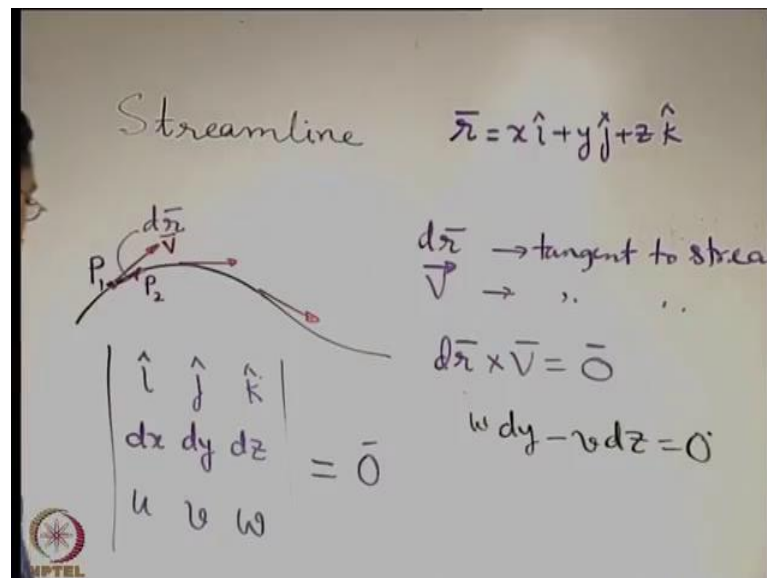 Streamline
r̄ = xî + yĵ + zk̂
dr̄
V̄
P₁
P₂
dr̄ → tangent to strea
V⃗ → ,, ,,
dr̄ × V̄ = 0̄
w dy − v dz = 0
| î ĵ k̂ |
| dx dy dz | = 0̄
| u v w |
NPTEL